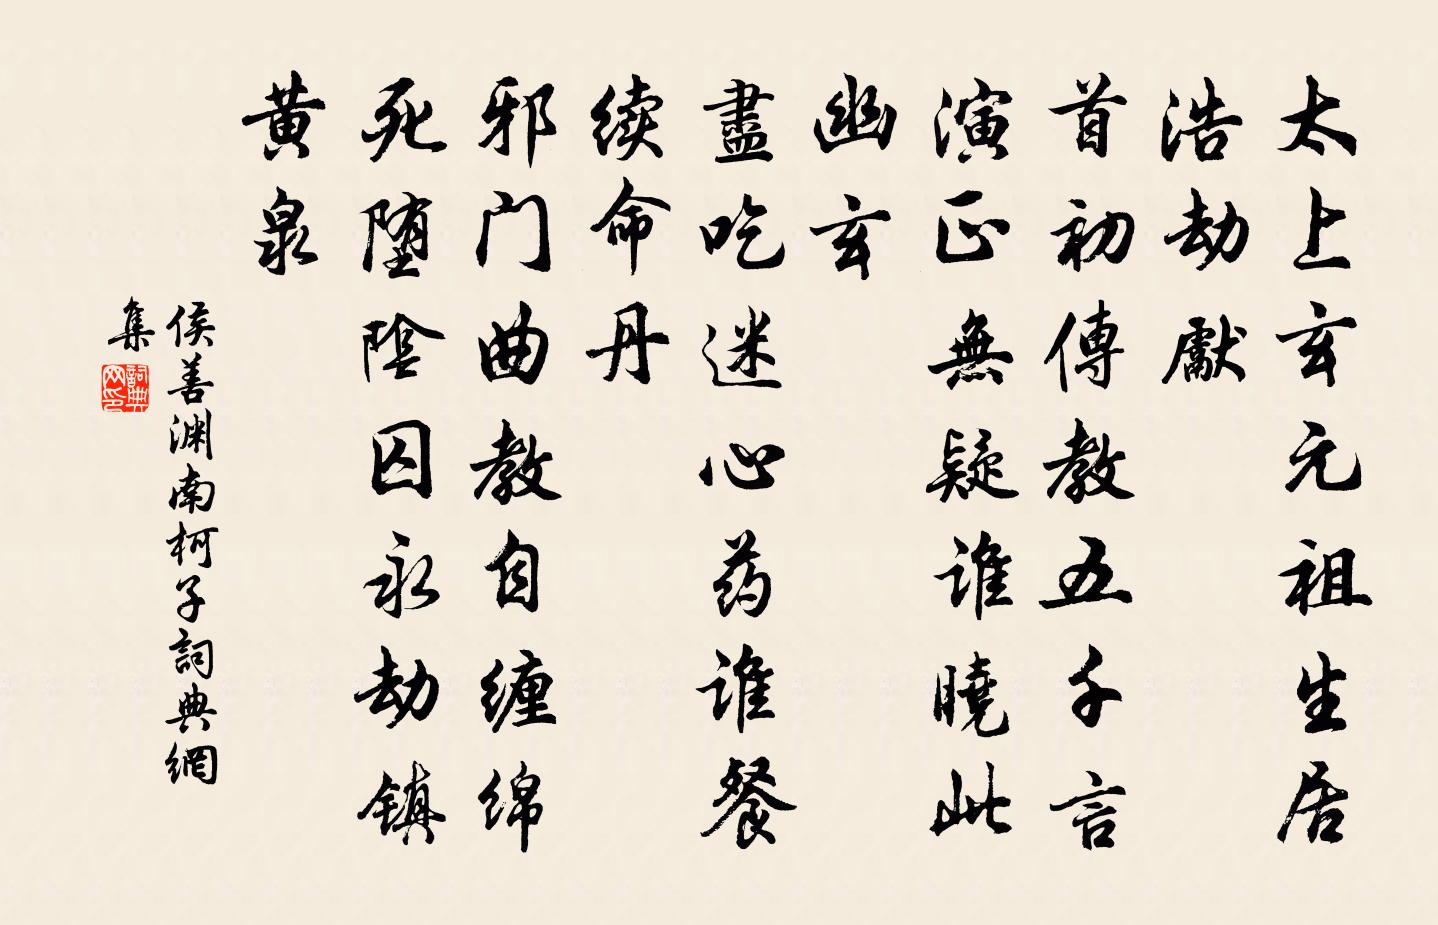 太上玄元祖生居
浩劫獻
首初傳教五千言
演正無疑誰曉此
幽玄
盡吃迷心药誰餐
续命丹
邪门曲教自缠绵
死堕陰囚永劫镇
黄泉
侯善渊南柯子詞典網
集
詞典网印